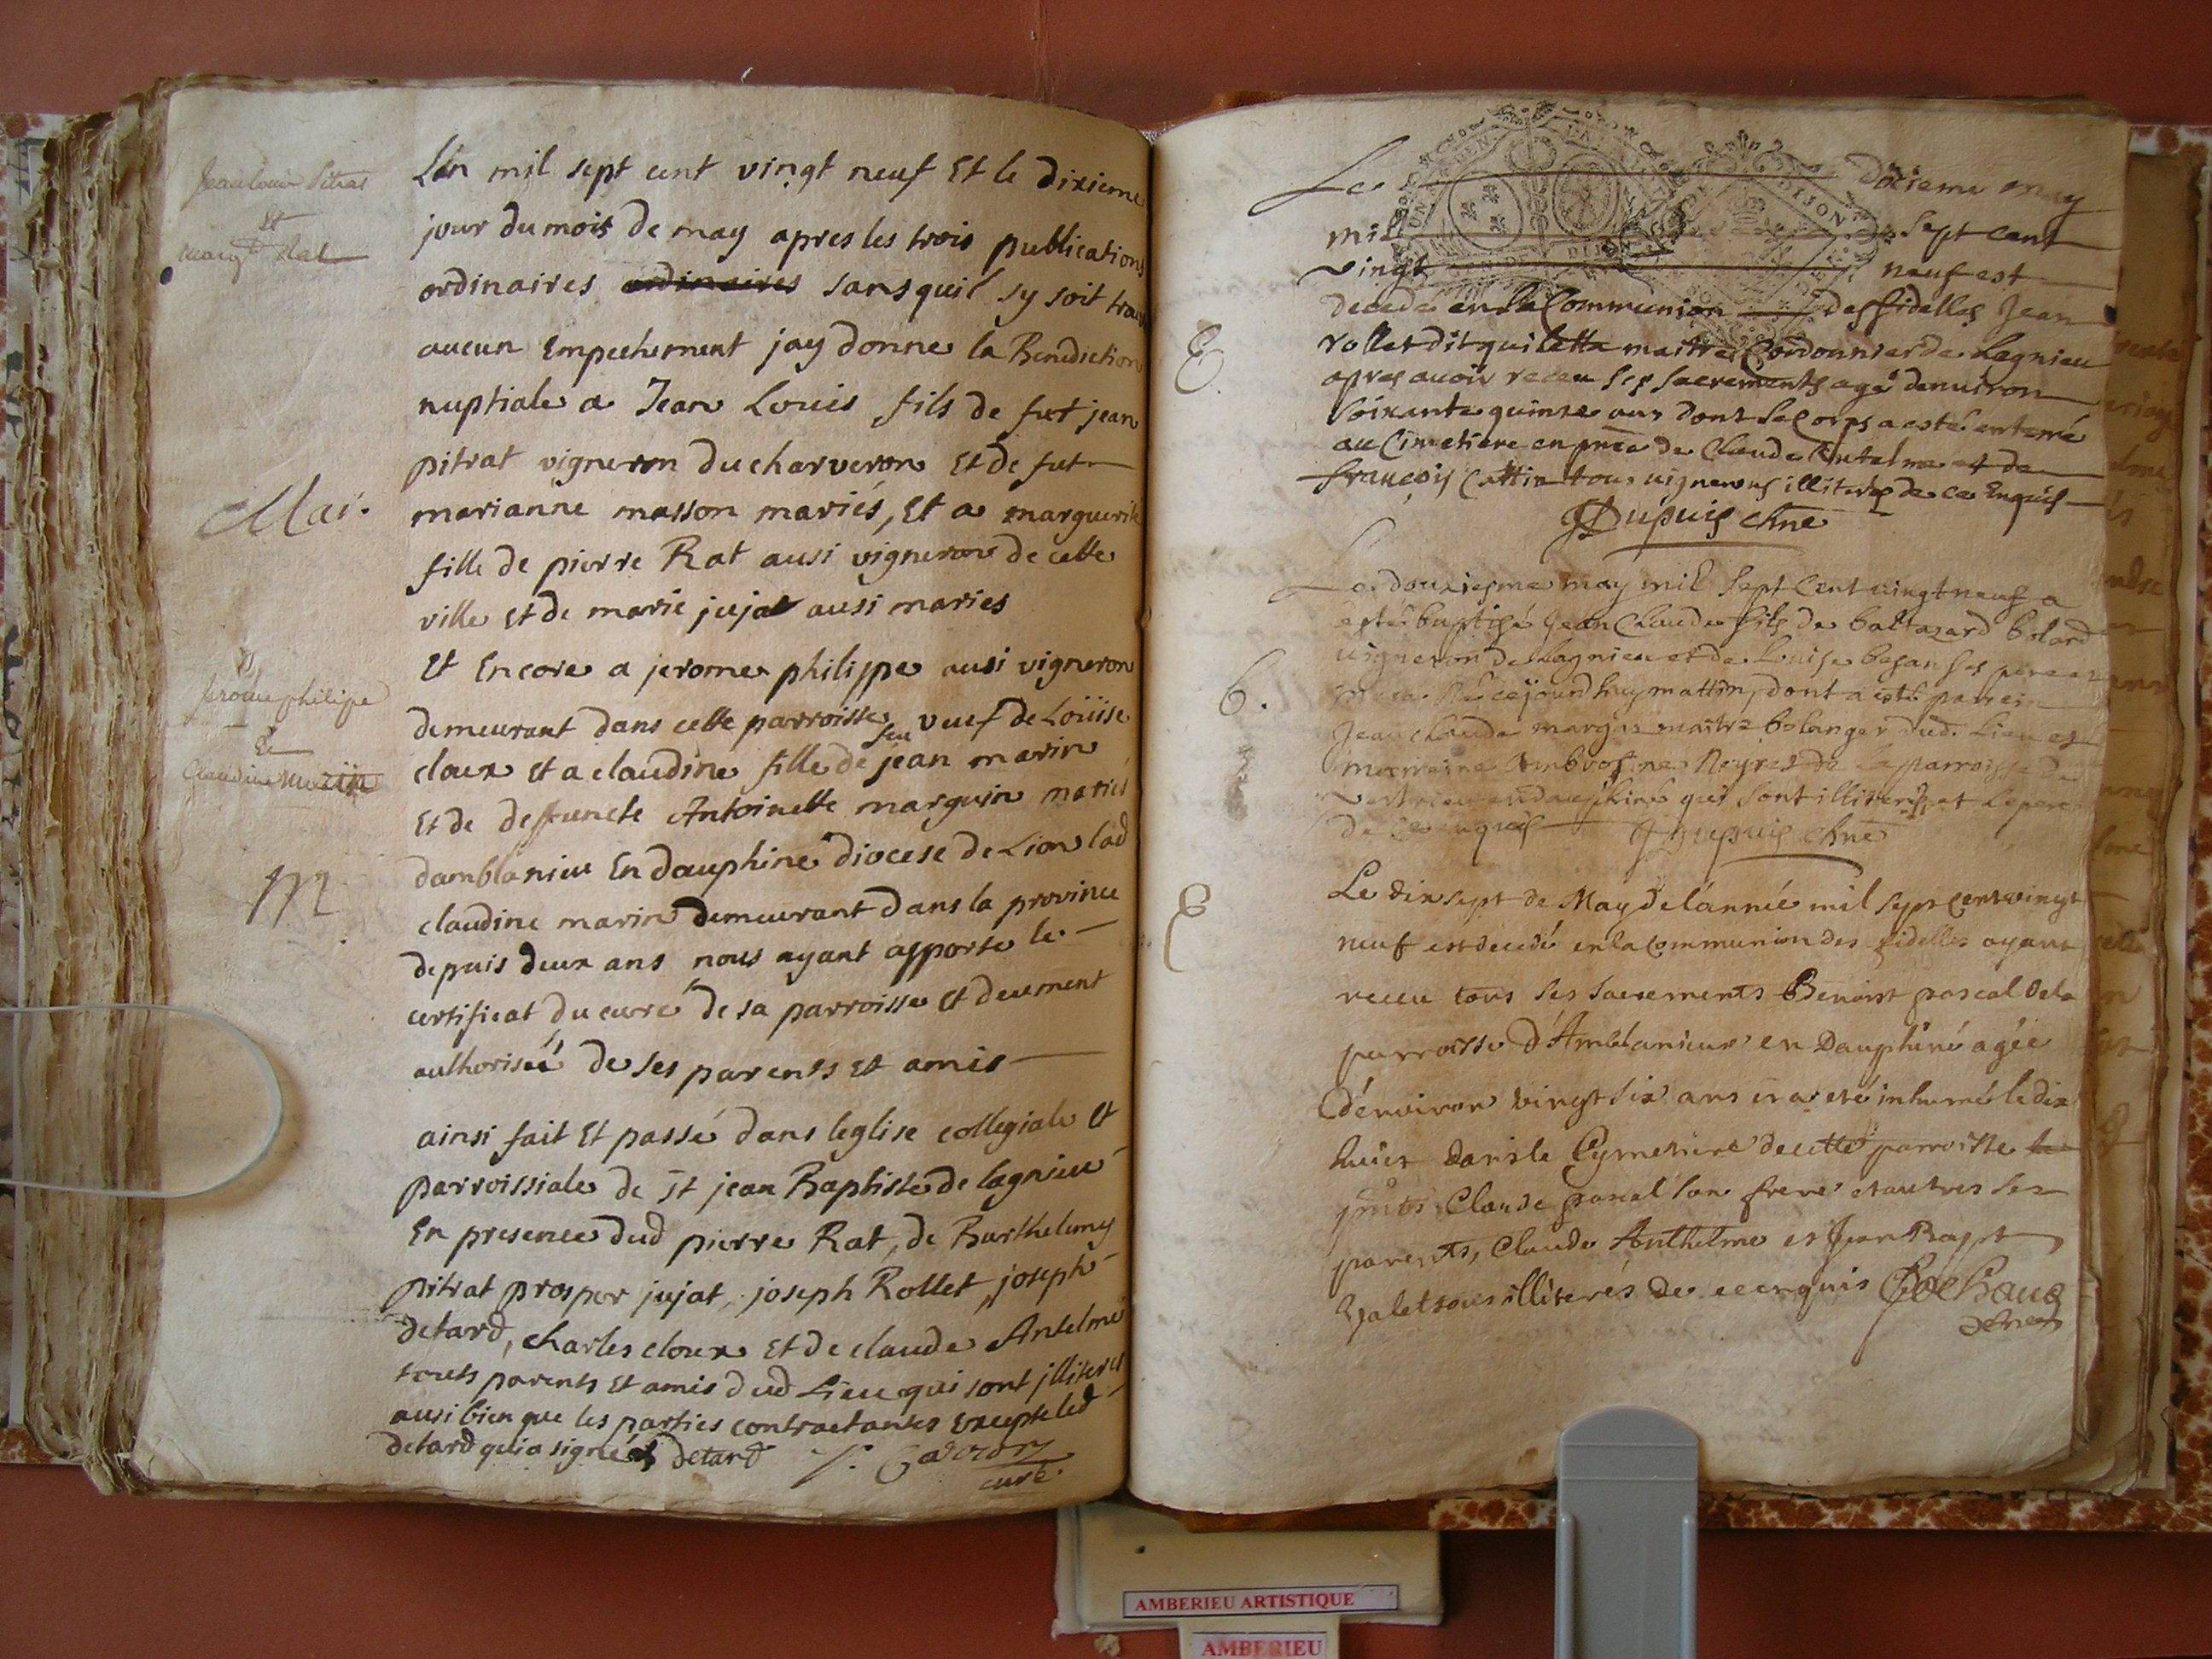 Jean louis Pitrat
et
marg^te Rat
Mai.
Jerome philipe
et
Claudine marin
M
L'an mil sept cent vingt neuf Et le dixieme
jour du mois de may apres les trois publications
ordinaires ordinaires sans quil sy soit trouv
aucun Empechement jay donne la Benediction
nuptiale a Jean Louis fils de fut jean
pitrat vigneron du charveron Et de fut
marianne masson mariés, Et a marguerite
fille de pierre Rat ausi vigneron de cette
ville Et de marie jujat ausi maries
Et Encore a jerome philippe ausi vigneron
demeurant dans cette parroisse veuf de Loüise
cloux Et a claudine fille de feu jean marin
Et de deffuncte Antoinette marguin mariés
damblanieu En dauphine diocese de Lion lad
claudine marin demeurant dans la province
depuis deux ans nous ayant apporté le
certificat du curé de sa parroisse Et deument
authorisée de ses parents Et amis
ainsi fait Et passé dans leglise collegiale Et
parroissiale de St jean Baptiste de lagnieu
En presence dud pierre Rat, de Barthelemy
pitrat prosper jujat, joseph Rollet, joseph
detard, charles cloux Et de claude Antelme
touts parents Et amis dud Lieu qui sont jlliteres
ausi bien que les parties contractantes Excepte led
detard qui a signé detard
curé
Le douzieme may
mil sept cent
vingt neuf est
decedé en la Communion des fidelles Jean
rollet dit quiletta maitre Cordonnier de Lagnieu
apres avoir receu ses sacrements agé denuiron
soixante quinze ans dont le Corps a esté enterré
au Cimetiere en pnce de Claude Antelme et de
françois Cattin tous uignerons illiteres de ce Enquis
Dupuis chne
E
Le douziesme may mil sept Cent uingt neuf a
esté baptisé Jean Claude fils de baltazard bolard
uigneron de Lagnieu et de Louise besan ses pere et
mere Né ce jourdhuy mattin, dont a esté parrein
Jean claude margin maitre bolanger dud. Lieu et
marreine Ambrosine Neyret de la parroisse de
Vertrieu en dauphiné qui sont illiteres et le pere
de ce enquis Dupuis chne
b.
Le dix sept de May de l'année mil sept cent vingt
neuf est decedé en la Communion des fidelles ayant
receu tous ses sacrements Benoist pascal de la
parroisse d'Amblanieux en Dauphiné agée
d'environ vingt six ans et a eté inhumé le dix
huict dans le Cymetiere de cette parroisse
pnts Claude pascal son frere et autres ses
parents, Claude Anthelme et Jean Bapt
Galet tous illiterés de ce enquis
E
DIJON
AMBERIEU ARTISTIQUE
AMBERIEU